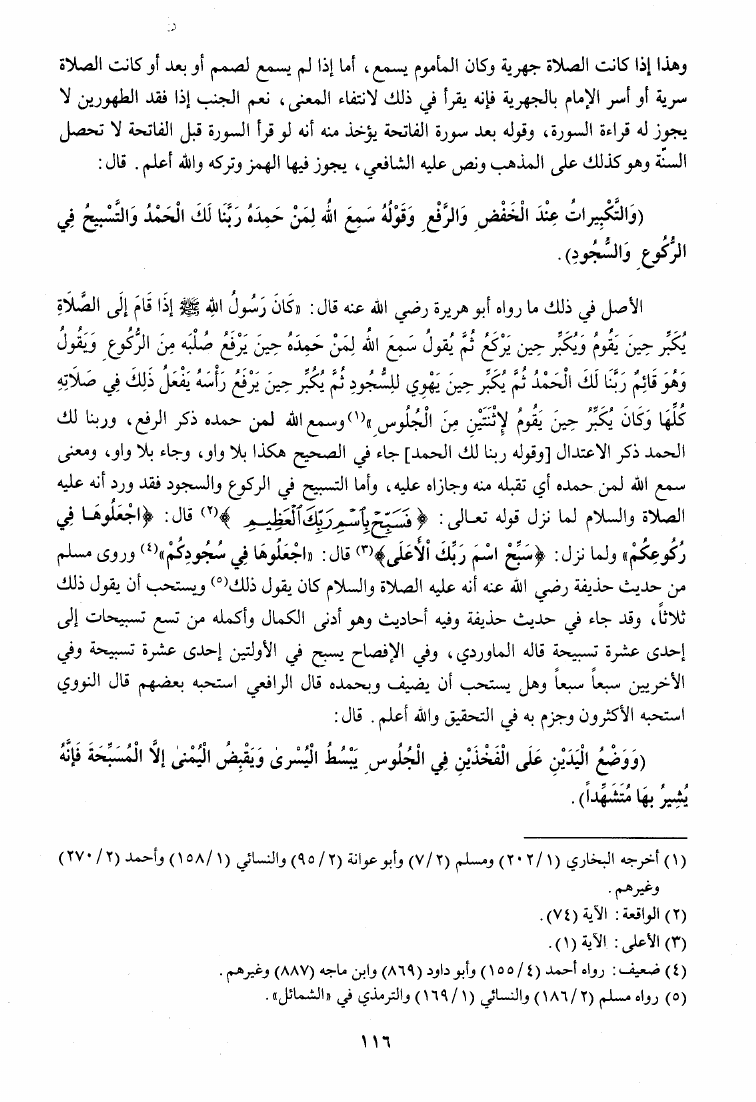 وهذا إذا كانت الصلاة جهرية وكان المأموم يسمع، أما إذا لم يسمع لصمم أو بعد أو كانت الصلاة
سرية أو أسر الإمام بالجهرية فإنه يقرأ في ذلك لانتفاء المعنى، نعم الجنب إذا فقد الطهورين لا
يجوز له قراءة السورة، وقوله بعد سورة الفاتحة يؤخذ منه أنه لو قرأ السورة قبل الفاتحة لا تحصل
السنّة وهو كذلك على المذهب ونص عليه الشافعي، يجوز فيها الهمز وتركه والله أعلم. قال:
(وَالتَّكْبِيرَاتُ عِنْدَ الْخَفْضِ وَالرَّفْعِ وَقَوْلُهُ سَمِعَ اللهُ لِمَنْ حَمِدَهُ رَبَّنَا لَكَ الْحَمْدُ وَالتَّسْبِيحُ فِي
الرُّكُوعِ وَالسُّجُودِ).
الأصل في ذلك ما رواه أبو هريرة رضي الله عنه قال: «كَانَ رَسُولُ اللهِ ﷺ إِذَا قَامَ إِلَى الصَّلَاةِ
يُكَبِّر حِينَ يَقُومُ وَيُكَبِّر حِينَ يَرْكَعُ ثُمَّ يَقُولُ سَمِعَ اللهُ لِمَنْ حَمِدَهُ حِينَ يَرْفَعُ صُلْبَه مِنَ الرُّكُوعِ وَيَقُولُ
وَهُوَ قَائِمٌ رَبَّنَا لَكَ الْحَمْدُ ثُمَّ يُكَبِّر حِينَ يَهْوِي لِلسُّجُودِ ثُمَّ يُكَبِّر حِينَ يَرْفَعُ رَأْسَهُ يَفْعَلُ ذَلِكَ فِي صَلَاتِهِ
كُلِّهَا وَكَانَ يُكَبِّرُ حِينَ يَقُومُ لِاثْنَتَيْنِ مِنَ الْجُلُوسِ»(١) وسمع الله لمن حمده ذكر الرفع، وربنا لك
الحمد ذكر الاعتدال [وقوله ربنا لك الحمد] جاء في الصحيح هكذا بلا واو، وجاء بلا واو، ومعنى
سمع الله لمن حمده أي تقبله منه وجازاه عليه، وأما التسبيح في الركوع والسجود فقد ورد أنه عليه
الصلاة والسلام لما نزل قوله تعالى: ﴿فَسَبِّحْ بِاسْمِ رَبِّكَ الْعَظِيمِ﴾(٢) قال: ﴿اجْعَلُوهَا فِي
رُكُوعِكُمْ» ولما نزل: ﴿سَبِّحْ اسْمَ رَبِّكَ الْأَعْلَى﴾(٣) قال: «اجْعَلُوهَا فِي سُجُودِكُمْ»(٤) وروى مسلم
من حديث حذيفة رضي الله عنه أنه عليه الصلاة والسلام كان يقول ذلك(٥) ويستحب أن يقول ذلك
ثلاثاً، وقد جاء في حديث حذيفة وفيه أحاديث وهو أدنى الكمال وأكمله من تسع تسبيحات إلى
إحدى عشرة تسبيحة قاله الماوردي، وفي الإفصاح يسبح في الأولتين إحدى عشرة تسبيحة وفي
الأخريين سبعاً سبعاً وهل يستحب أن يضيف وبحمده قال الرافعي استحبه بعضهم قال النووي
استحبه الأكثرون وجزم به في التحقيق والله أعلم. قال:
(وَوَضْعُ الْيَدَيْنِ عَلَى الْفَخْذَيْنِ فِي الْجُلُوسِ يَبْسُطُ الْيُسْرَى وَيَقْبِضُ الْيُمْنَى إِلَّا الْمُسَبِّحَةَ فَإِنَّهُ
يُشِيرُ بِهَا مُتَشَهِّداً).
(١) أخرجه البخاري (٢٠٢/١) ومسلم (٧/٢) وأبو عوانة (٩٥/٢) والنسائي (١٥٨/١) وأحمد (٢٧٠/٢)
وغيرهم.
(٢) الواقعة: الآية (٧٤).
(٣) الأعلى: الآية (١).
(٤) ضعيف: رواه أحمد (١٥٥/٤) وأبو داود (٨٦٩) وابن ماجه (٨٨٧) وغيرهم.
(٥) رواه مسلم (١٨٦/٢) والنسائي (١٦٩/١) والترمذي في «الشمائل».
١١٦